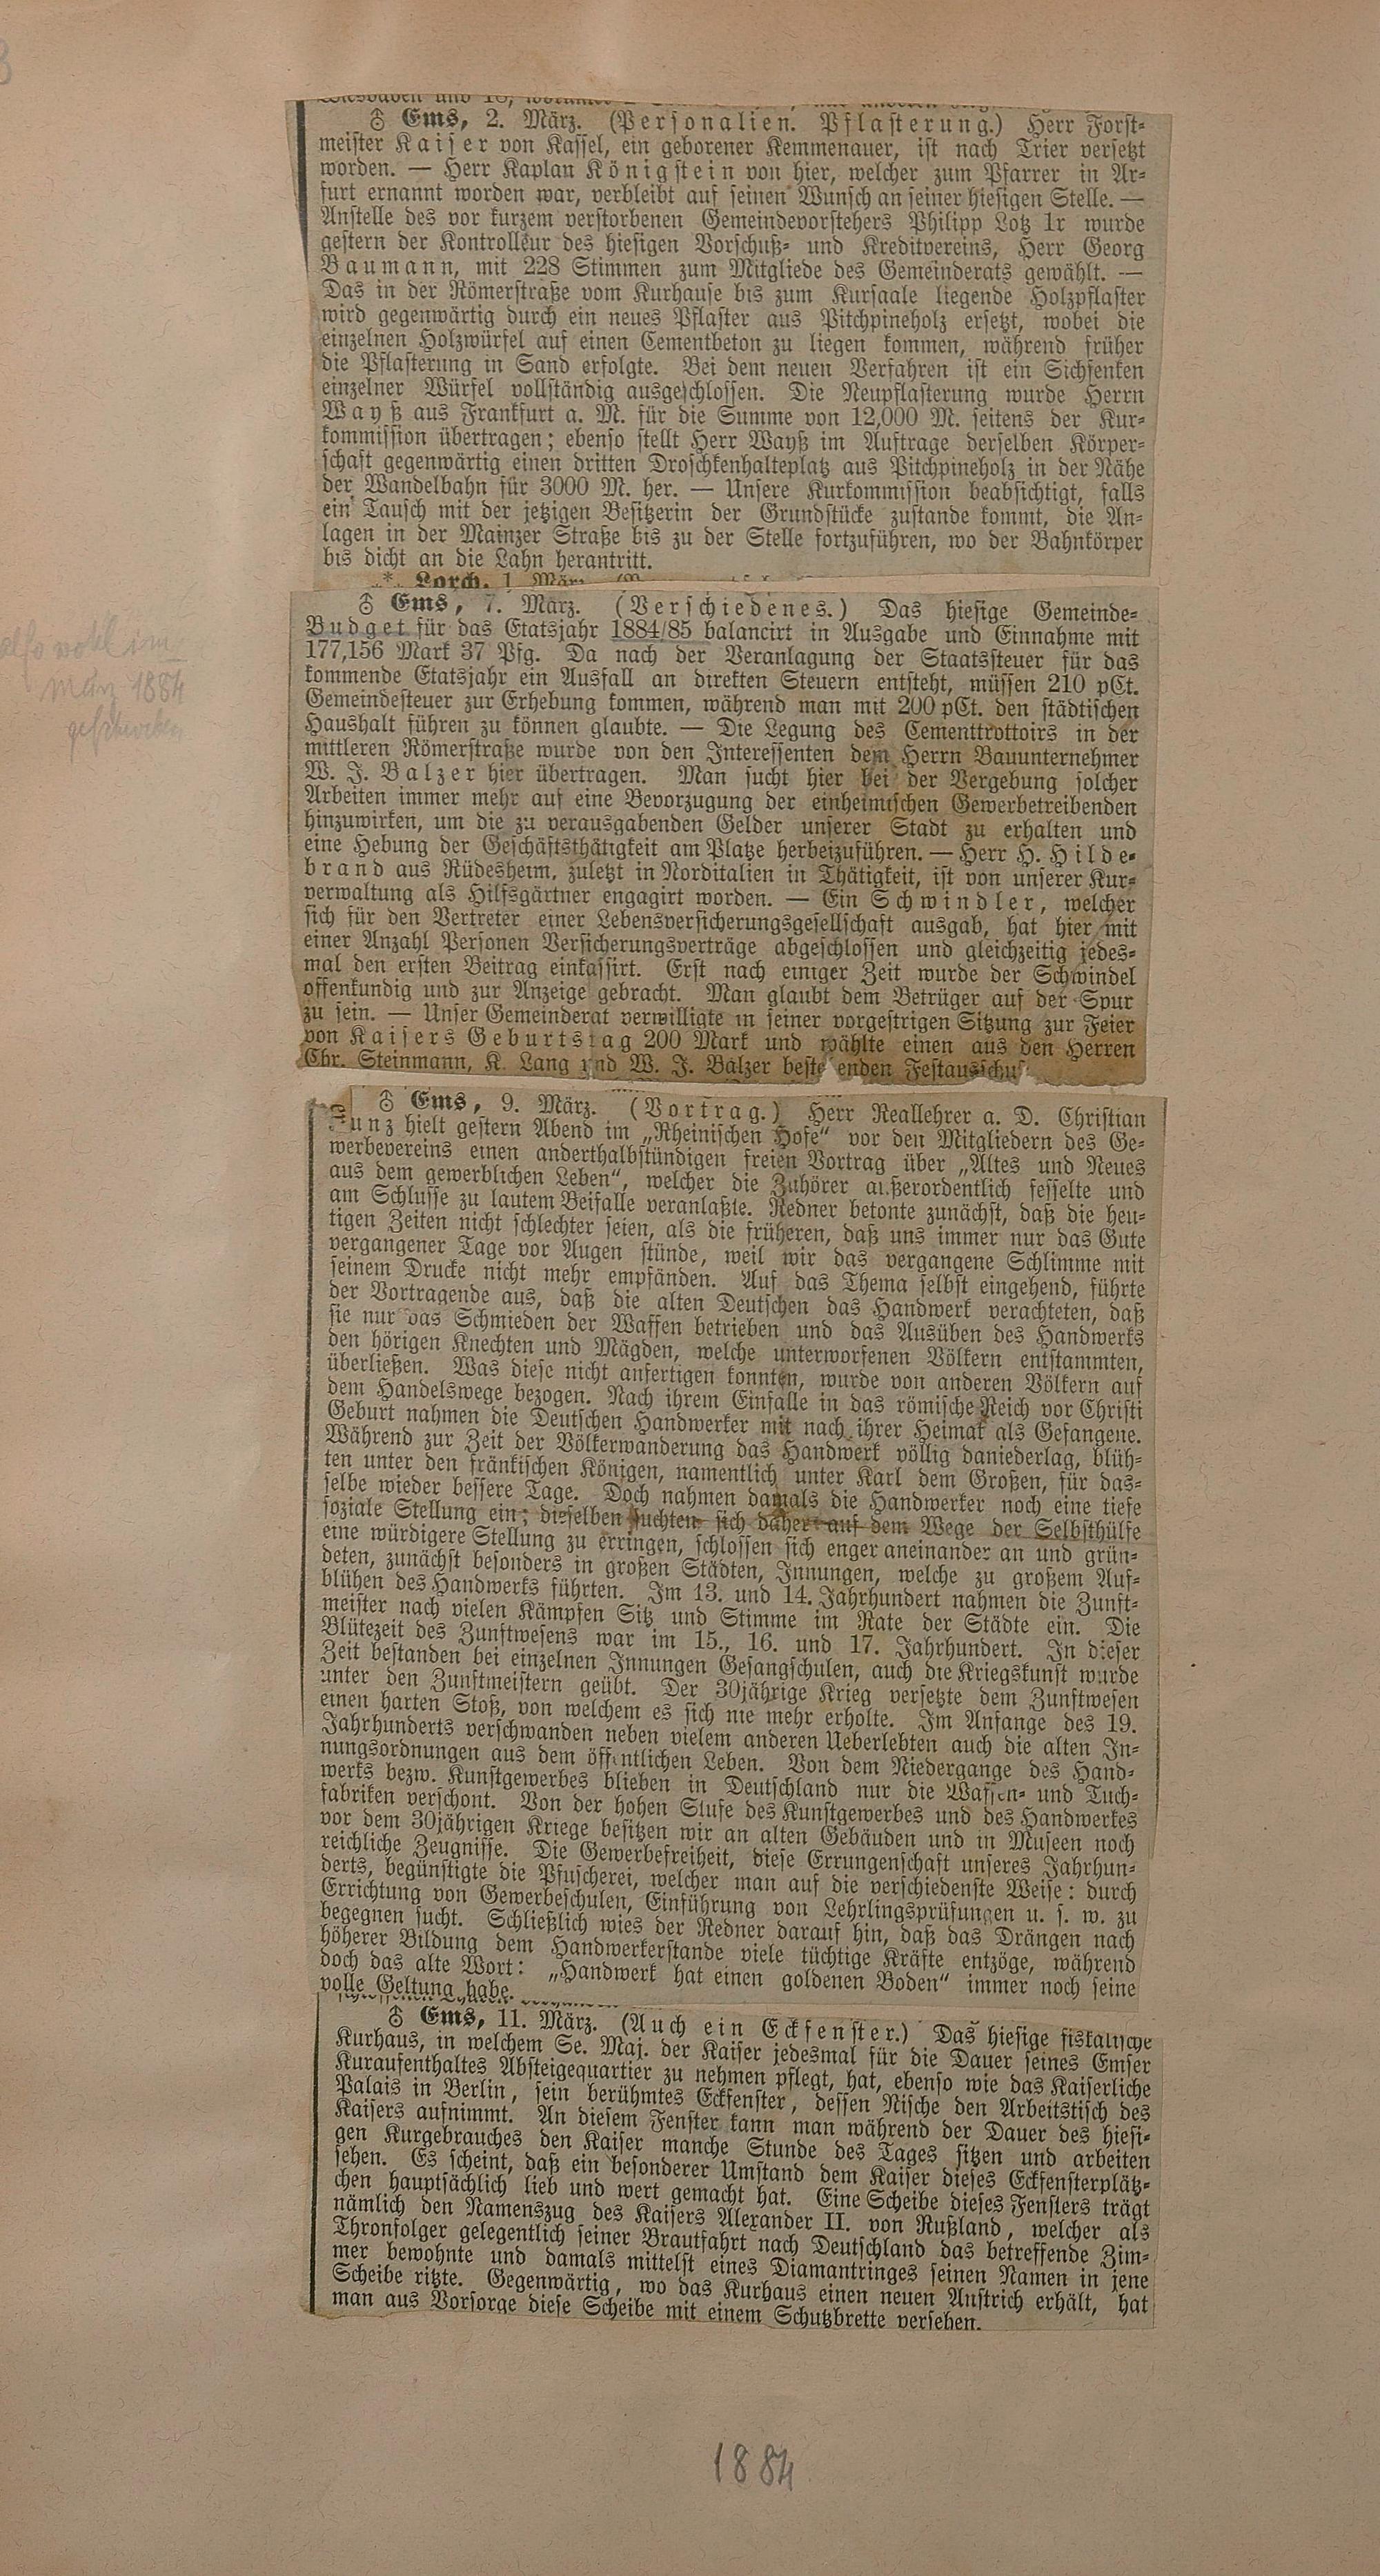 ♁ Ems, 2. März. (Personalien. Pflasterung.) Herr Forst-
meister Kaiser von Kassel, ein geborener Kemmenauer, ist nach Trier versetzt
worden. — Herr Kaplan Königstein von hier, welcher zum Pfarrer in Ar-
furt ernannt worden war, verbleibt auf seinen Wunsch an seiner hiesigen Stelle. —
Anstelle des vor kurzem verstorbenen Gemeindevorstehers Philipp Lotz 1r wurde
gestern der Kontrolleur des hiesigen Vorschuß- und Kreditvereins, Herr Georg
Baumann, mit 228 Stimmen zum Mitgliede des Gemeinderats gewählt. —
Das in der Römerstraße vom Kurhause bis zum Kursaale liegende Holzpflaster
wird gegenwärtig durch ein neues Pflaster aus Pitchpineholz ersetzt, wobei die
einzelnen Holzwürfel auf einen Cementbeton zu liegen kommen, während früher
die Pflasterung in Sand erfolgte. Bei dem neuen Verfahren ist ein Sichsenken
einzelner Würfel vollständig ausgeschlossen. Die Neupflasterung wurde Herrn
Wayß aus Frankfurt a. M. für die Summe von 12,000 M. seitens der Kur-
kommission übertragen; ebenso stellt Herr Wayß im Auftrage derselben Körper-
schaft gegenwärtig einen dritten Droschkenhalteplatz aus Pitchpineholz in der Nähe
der Wandelbahn für 3000 M. her. — Unsere Kurkommission beabsichtigt, falls
ein Tausch mit der jetzigen Besitzerin der Grundstücke zustande kommt, die An-
lagen in der Mainzer Straße bis zu der Stelle fortzuführen, wo der Bahnkörper
bis dicht an die Lahn herantritt.
*** Lorch, 1. März.
♁ Ems, 7. März. (Verschiedenes.) Das hiesige Gemeinde-
Budget für das Etatsjahr 1884/85 balancirt in Ausgabe und Einnahme mit
177,156 Mark 37 Pfg. Da nach der Veranlagung der Staatssteuer für das
kommende Etatsjahr ein Ausfall an direkten Steuern entsteht, müssen 210 pCt.
Gemeindesteuer zur Erhebung kommen, während man mit 200 pCt. den städtischen
Haushalt führen zu können glaubte. — Die Legung des Cementtrottoirs in der
mittleren Römerstraße wurde von den Interessenten dem Herrn Bauunternehmer
W. J. Balzer hier übertragen. Man sucht hier bei der Vergebung solcher
Arbeiten immer mehr auf eine Bevorzugung der einheimischen Gewerbetreibenden
hinzuwirken, um die zu verausgabenden Gelder unserer Stadt zu erhalten und
eine Hebung der Geschäftsthätigkeit am Platze herbeizuführen. — Herr H. Hilde-
brand aus Rüdesheim, zuletzt in Norditalien in Thätigkeit, ist von unserer Kur-
verwaltung als Hilfsgärtner engagirt worden. — Ein Schwindler, welcher
sich für den Vertreter einer Lebensversicherungsgesellschaft ausgab, hat hier mit
einer Anzahl Personen Versicherungsverträge abgeschlossen und gleichzeitig jedes-
mal den ersten Beitrag einkassirt. Erst nach einiger Zeit wurde der Schwindel
offenkundig und zur Anzeige gebracht. Man glaubt dem Betrüger auf der Spur
zu sein. — Unser Gemeinderat verwilligte in seiner vorgestrigen Sitzung zur Feier
von Kaisers Geburtstag 200 Mark und wählte einen aus den Herren
Chr. Steinmann, K. Lang und W. J. Balzer bestehenden Festausschuß
also wohl im
März 1884
geschrieben
♁ Ems, 9. März. (Vortrag.) Herr Reallehrer a. D. Christian
Kunz hielt gestern Abend im „Rheinischen Hofe“ vor den Mitgliedern des Ge-
werbevereins einen anderthalbstündigen freien Vortrag über „Altes und Neues
aus dem gewerblichen Leben“, welcher die Zuhörer außerordentlich fesselte und
am Schlusse zu lautem Beifalle veranlaßte. Redner betonte zunächst, daß die heu-
tigen Zeiten nicht schlechter seien, als die früheren, daß uns immer nur das Gute
vergangener Tage vor Augen stünde, weil wir das vergangene Schlimme mit
seinem Drucke nicht mehr empfänden. Auf das Thema selbst eingehend, führte
der Vortragende aus, daß die alten Deutschen das Handwerk verachteten, daß
sie nur das Schmieden der Waffen betrieben und das Ausüben des Handwerks
den hörigen Knechten und Mägden, welche unterworfenen Völkern entstammten,
überließen. Was diese nicht anfertigen konnten, wurde von anderen Völkern auf
dem Handelswege bezogen. Nach ihrem Einfalle in das römische Reich vor Christi
Geburt nahmen die Deutschen Handwerker mit nach ihrer Heimat als Gefangene.
Während zur Zeit der Völkerwanderung das Handwerk völlig daniederlag, blüh-
ten unter den fränkischen Königen, namentlich unter Karl dem Großen, für das-
selbe wieder bessere Tage. Doch nahmen damals die Handwerker noch eine tiefe
soziale Stellung ein; dieselben suchten sich daher auf dem Wege der Selbsthülfe
eine würdigere Stellung zu erringen, schlossen sich enger aneinander an und grün-
deten, zunächst besonders in großen Städten, Innungen, welche zu großem Auf-
blühen des Handwerks führten. Im 13. und 14. Jahrhundert nahmen die Zunft-
meister nach vielen Kämpfen Sitz und Stimme im Rate der Städte ein. Die
Blütezeit des Zunftwesens war im 15., 16. und 17. Jahrhundert. In dieser
Zeit bestanden bei einzelnen Innungen Gesangschulen, auch die Kriegskunst wurde
unter den Zunftmeistern geübt. Der 30jährige Krieg versetzte dem Zunftwesen
einen harten Stoß, von welchem es sich nie mehr erholte. Im Anfange des 19.
Jahrhunderts verschwanden neben vielem anderen Ueberlebten auch die alten In-
nungsordnungen aus dem öffentlichen Leben. Von dem Niedergange des Hand-
werks bezw. Kunstgewerbes blieben in Deutschland nur die Waffen- und Tuch-
fabriken verschont. Von der hohen Stufe des Kunstgewerbes und des Handwerkes
vor dem 30jährigen Kriege besitzen wir an alten Gebäuden und in Museen noch
reichliche Zeugnisse. Die Gewerbefreiheit, diese Errungenschaft unseres Jahrhun-
derts, begünstigte die Pfuscherei, welcher man auf die verschiedenste Weise: durch
Errichtung von Gewerbeschulen, Einführung von Lehrlingsprüfungen u. s. w. zu
begegnen sucht. Schließlich wies der Redner darauf hin, daß das Drängen nach
höherer Bildung dem Handwerkerstande viele tüchtige Kräfte entzöge, während
doch das alte Wort: „Handwerk hat einen goldenen Boden“ immer noch seine
volle Geltung habe.
♁ Ems, 11. März. (Auch ein Eckfenster.) Das hiesige fiskalische
Kurhaus, in welchem Se. Maj. der Kaiser jedesmal für die Dauer seines Emser
Kuraufenthaltes Absteigequartier zu nehmen pflegt, hat, ebenso wie das Kaiserliche
Palais in Berlin, sein berühmtes Eckfenster, dessen Nische den Arbeitstisch des
Kaisers aufnimmt. An diesem Fenster kann man während der Dauer des hiesi-
gen Kurgebrauches den Kaiser manche Stunde des Tages sitzen und arbeiten
sehen. Es scheint, daß ein besonderer Umstand dem Kaiser dieses Eckfensterplätz-
chen hauptsächlich lieb und wert gemacht hat. Eine Scheibe dieses Fensters trägt
nämlich den Namenszug des Kaisers Alexander II. von Rußland, welcher als
Thronfolger gelegentlich seiner Brautfahrt nach Deutschland das betreffende Zim-
mer bewohnte und damals mittelst eines Diamantringes seinen Namen in jene
Scheibe ritzte. Gegenwärtig, wo das Kurhaus einen neuen Anstrich erhält, hat
man aus Vorsorge diese Scheibe mit einem Schutzbrette versehen.
1884